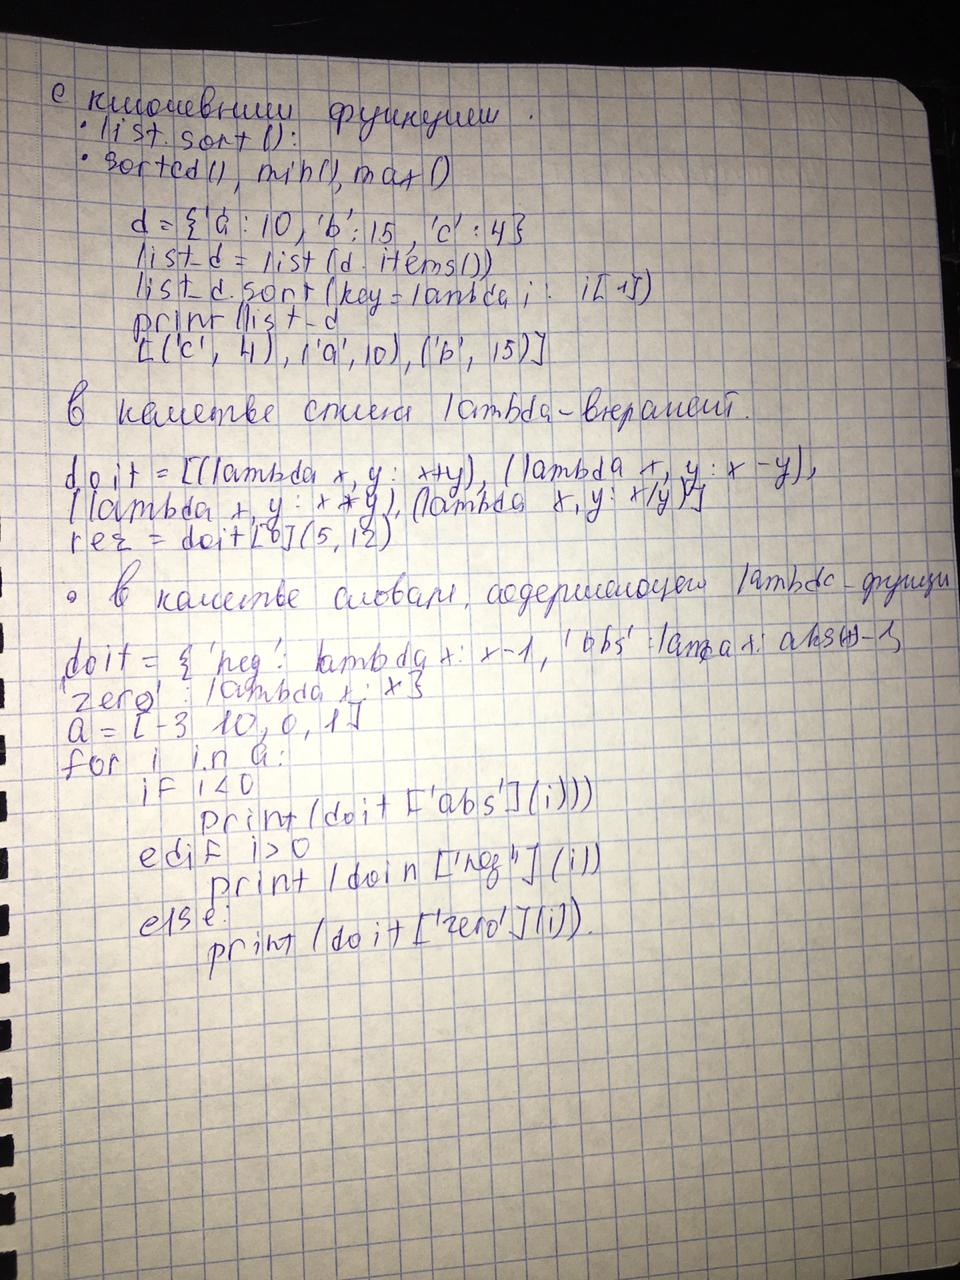 с ключевыми функциями.
• list.sort():
• sorted(), min(), max()
d = {'a : 10, 'b' : 15, 'c' : 4}
list_d = list(d.items())
list_d.sort(key=lambda i: i[1])
print(list-d
[('c', 4), ('a', 10), ('b', 15)]
В качестве списка lambda-выражений.
doit = [(lambda x, y: x+y), (lambda x, y: x-y),
(lambda x, y: x*y), (lambda x, y: x/y)]
rez = doit[0](5, 12)
• В качестве словаря, содержающего lambda-функции
doit = {'neg': lambda x: x-1, 'abs': lamba x: abs(x)-1,
'zero' : lambda x: x}
a = [-3 10, 0, 1]
for i in a:
if i<0
print(doit['abs'](i)))
edif i>0
print(doin['neg"](i))
else:
print(doit['zero'](i)).